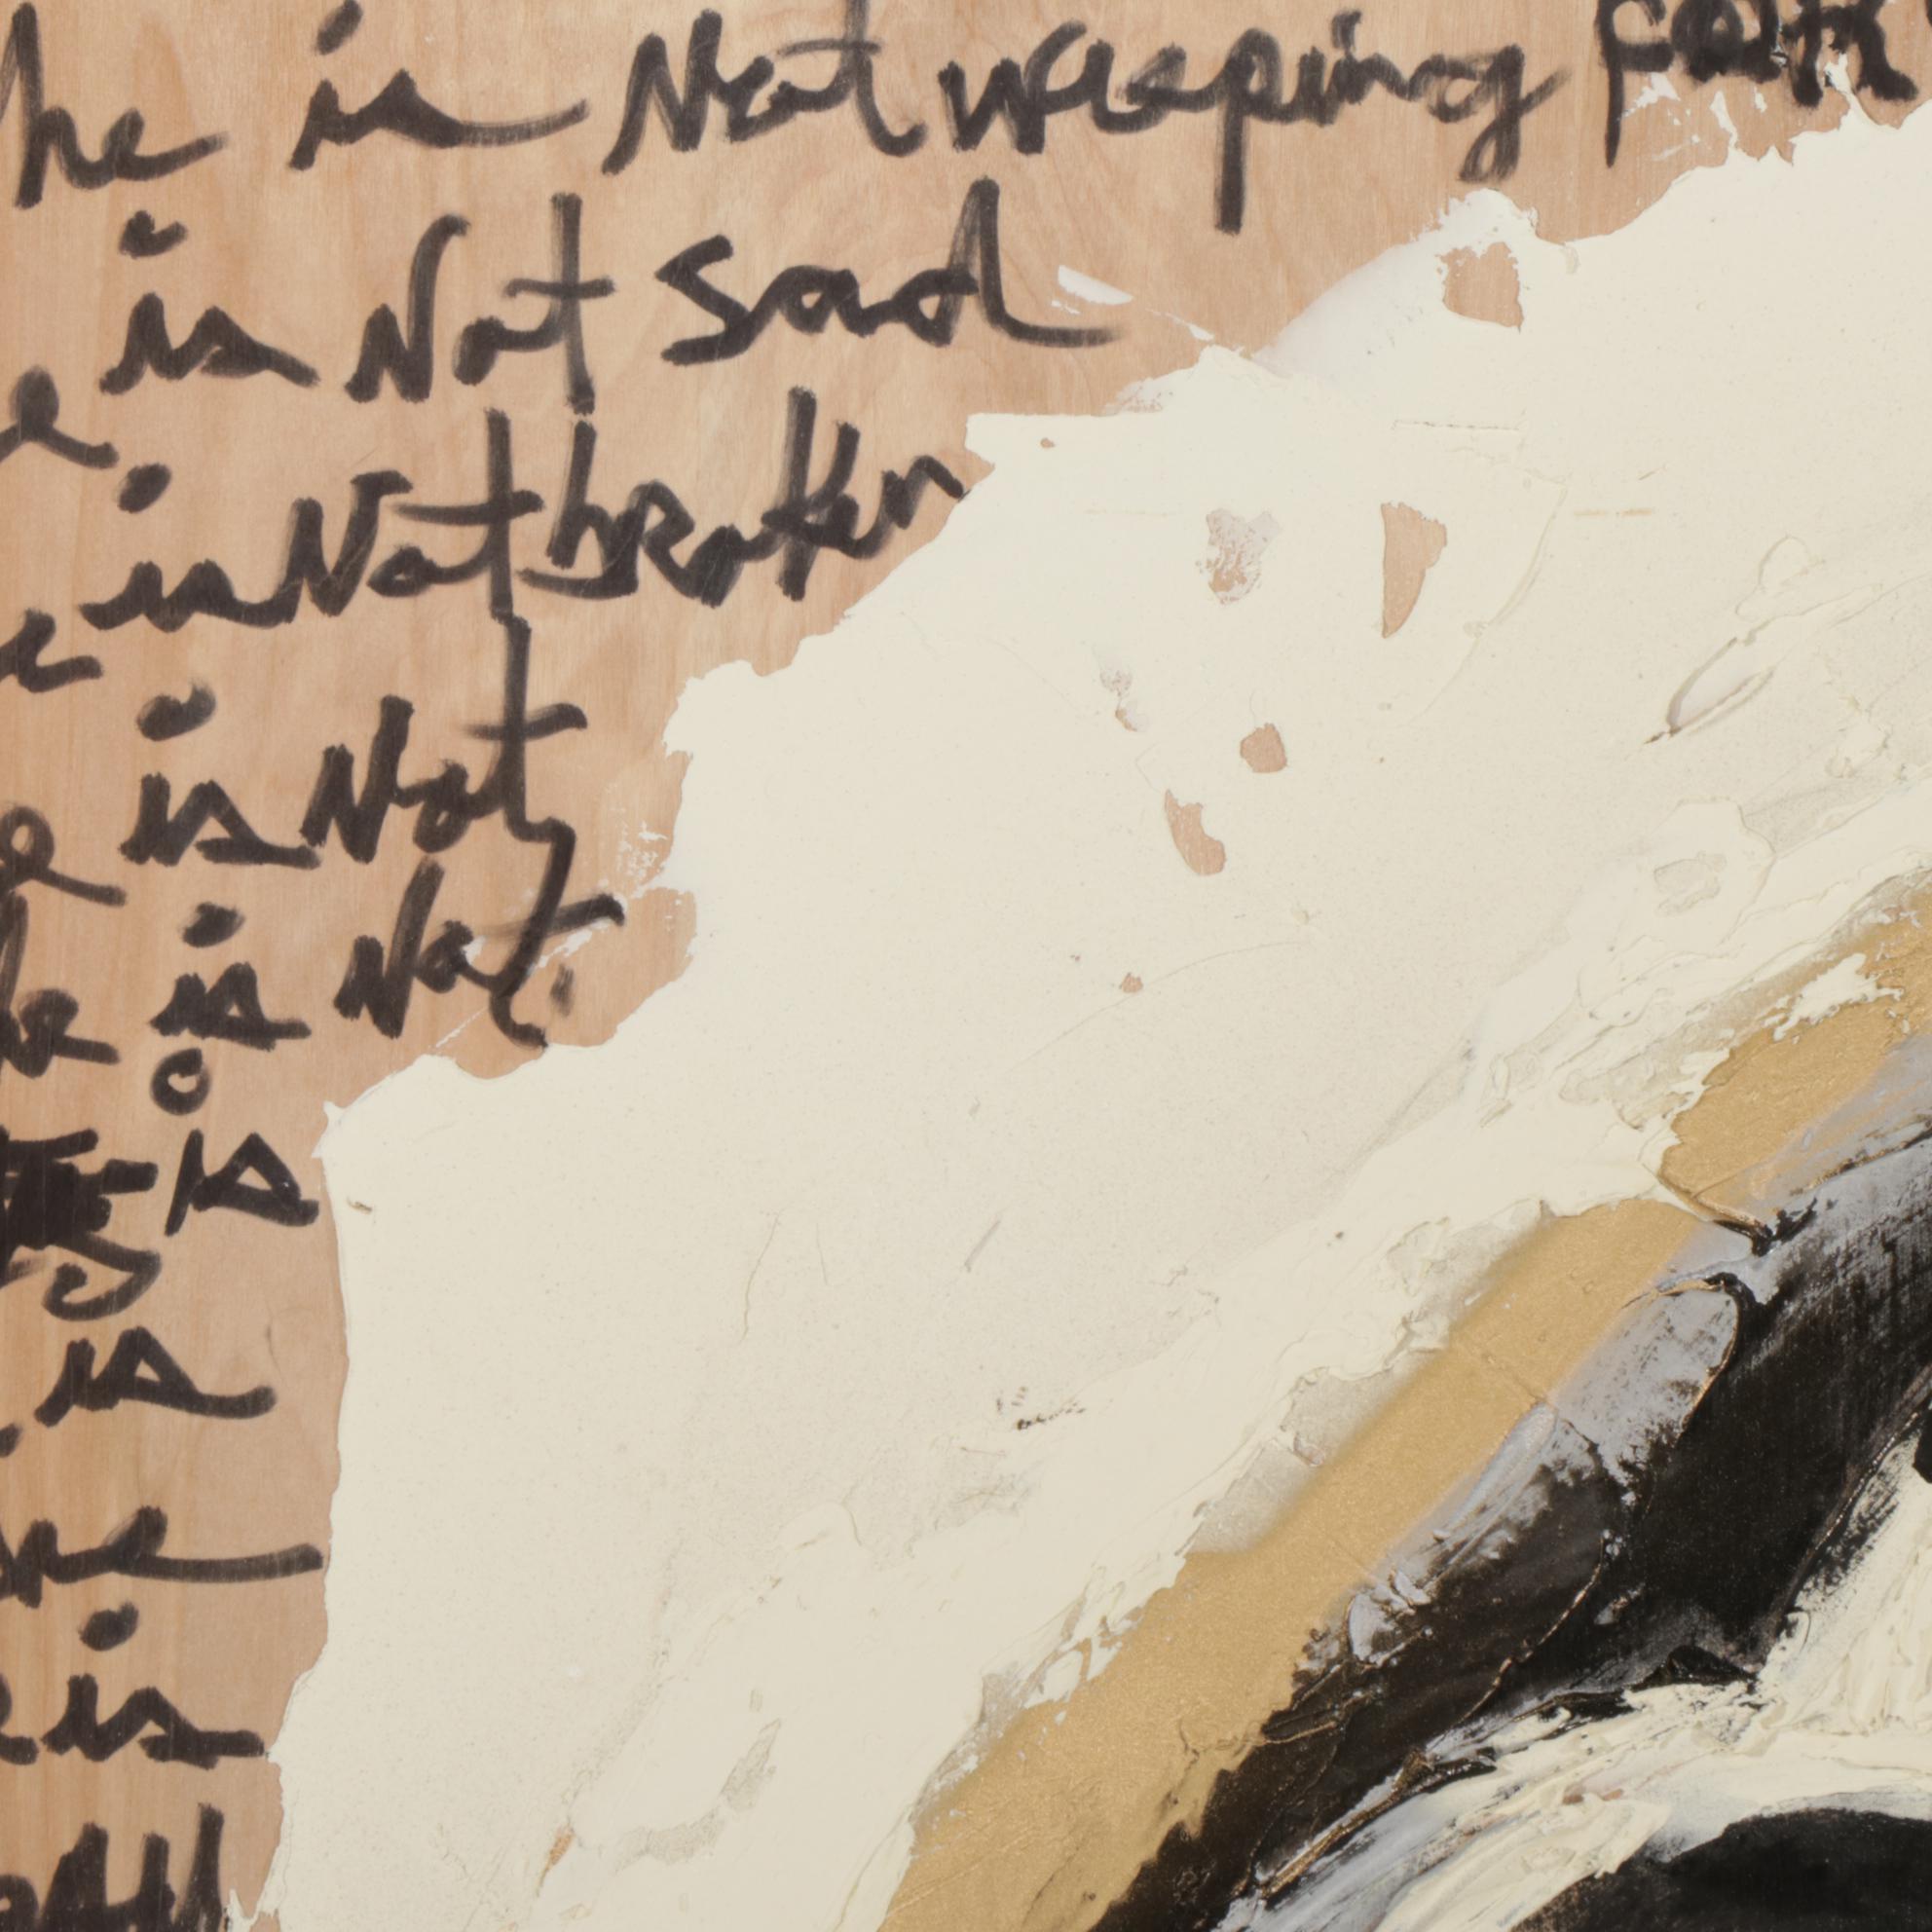 he is Not weeping
is Not sad
e is Not broken
e is Not
he is Not.
is
is
he
e is